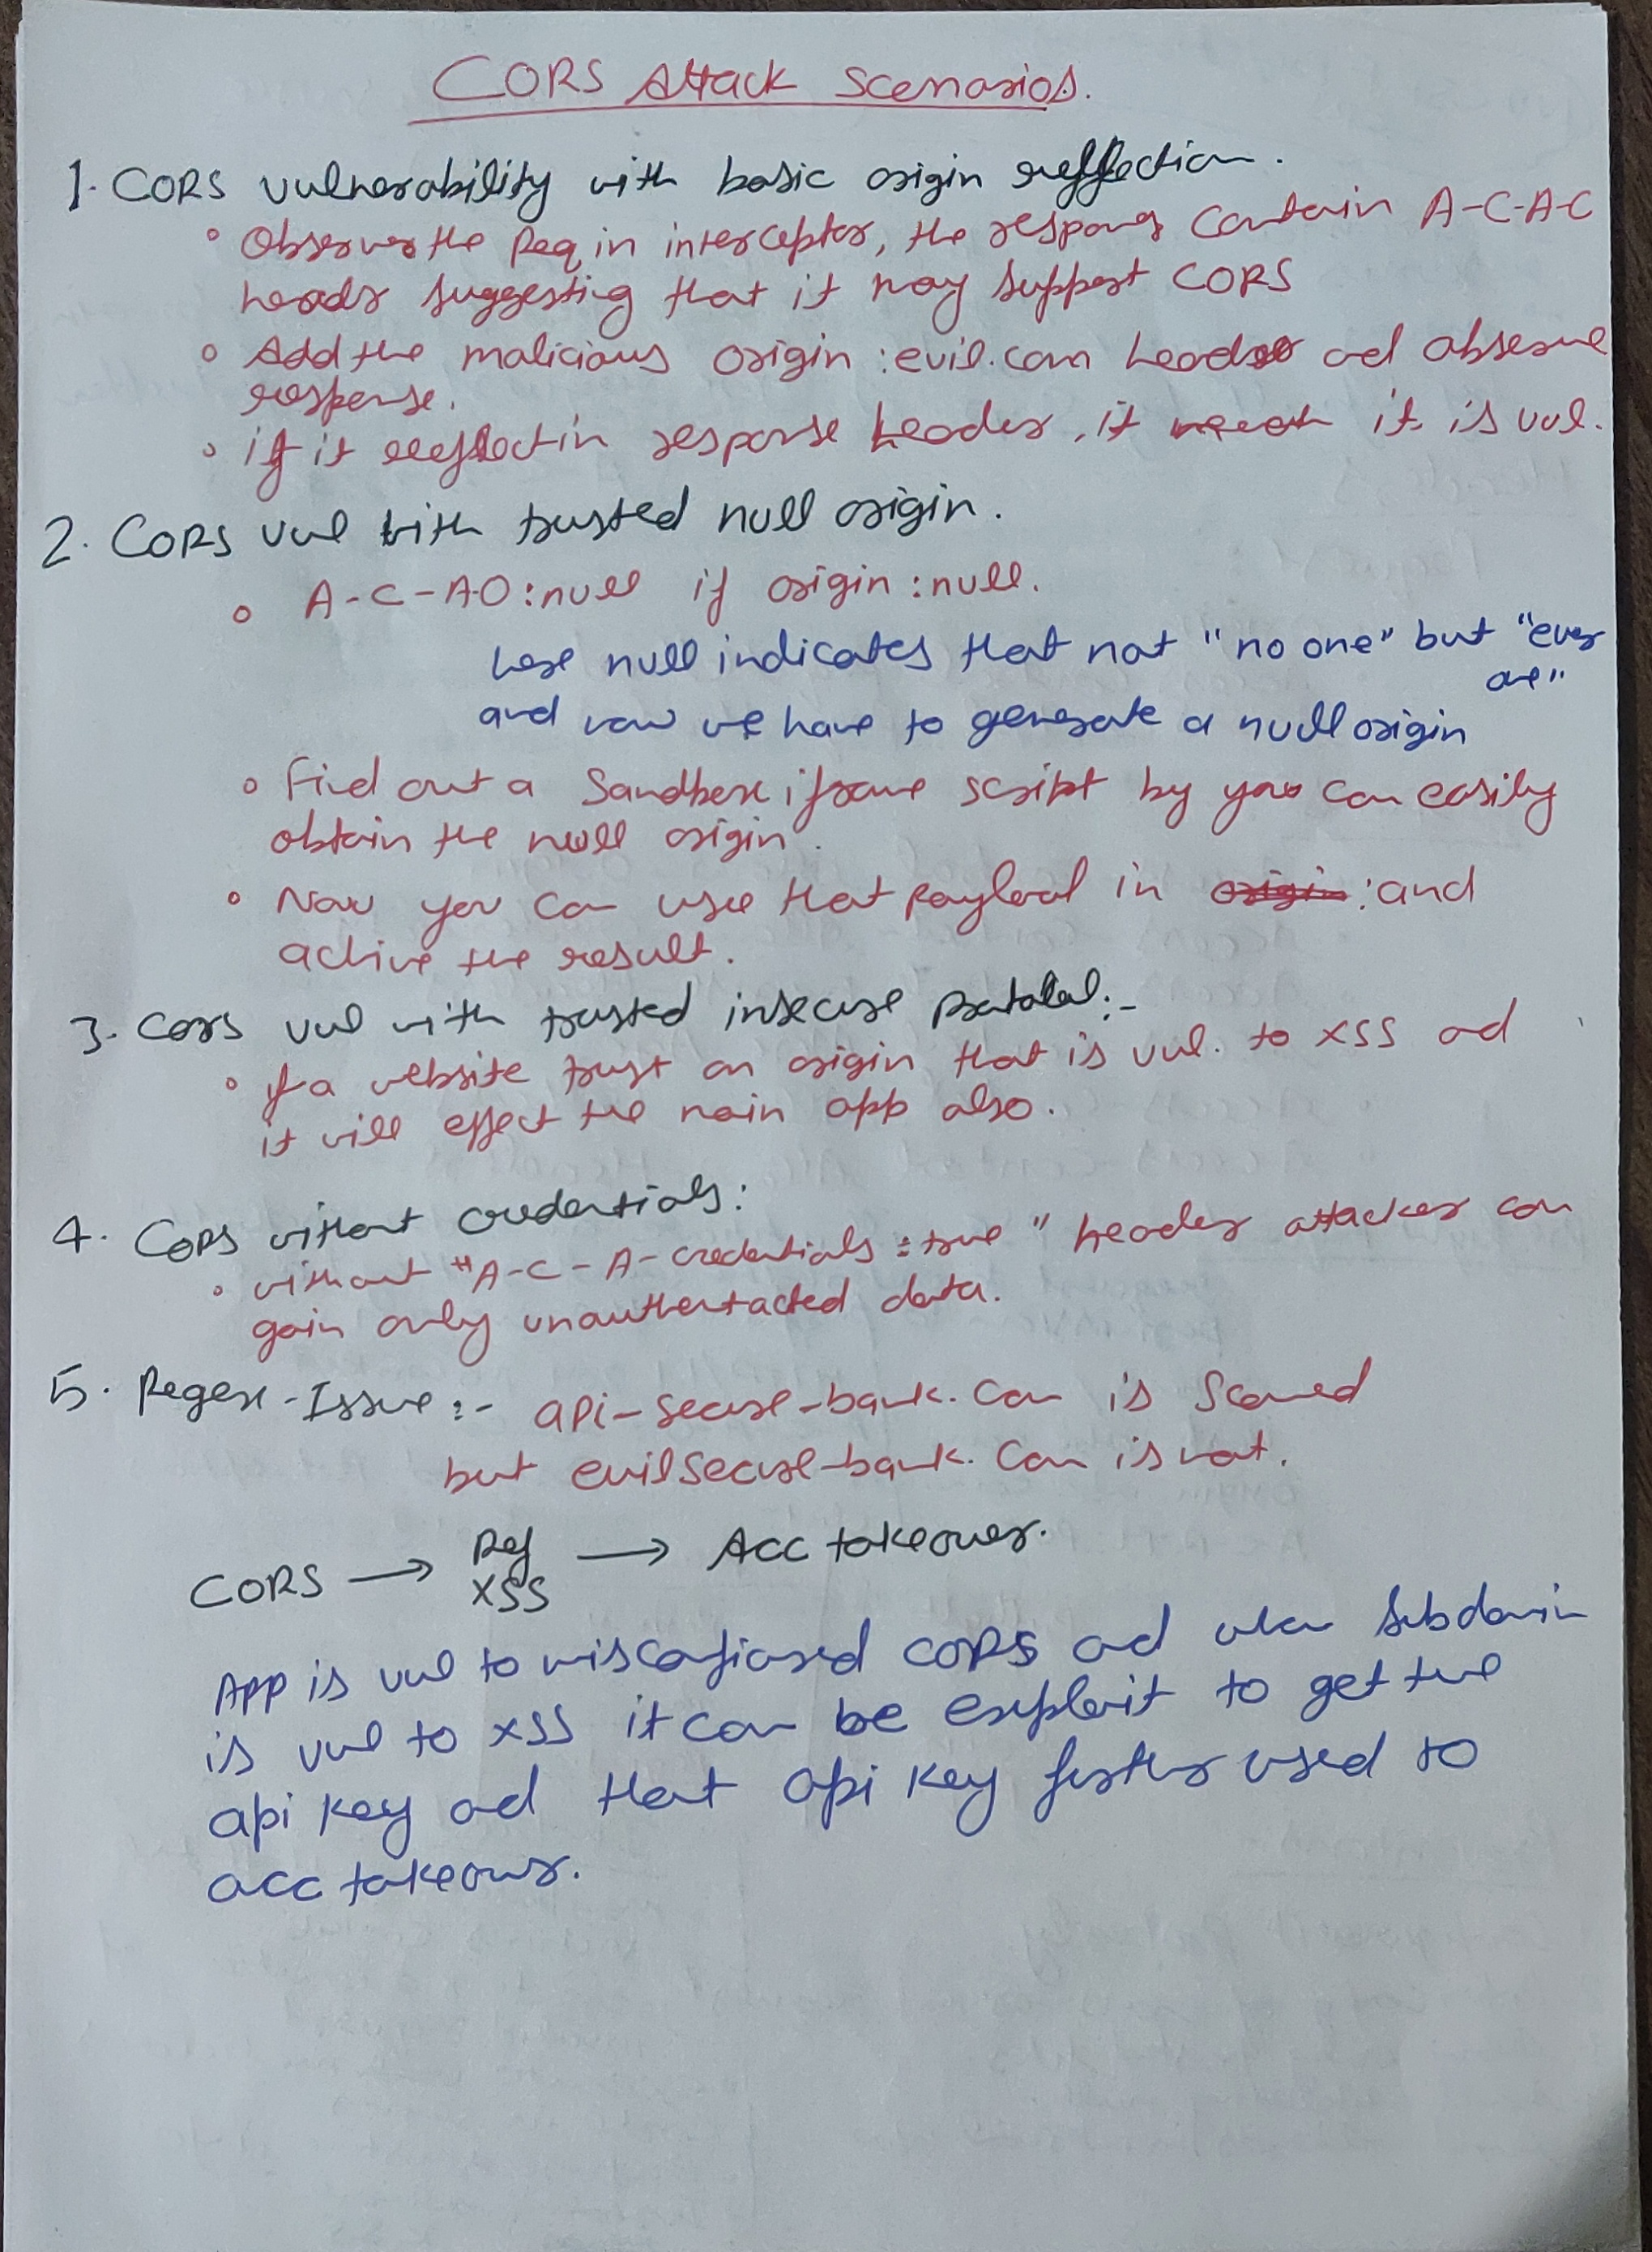 CORS Attack Scenarios.
1. CORS vulnerability with basic origin reffection.
• Observer the Req in interceptor, the respons contain A-C-A-C
header suggesting that it may support CORS
• Add the malicious origin : evil.com header ad observe
response.
• if it reeflect in response header, it it is vul.
2. CORS vul with trusted null origin.
• A-C-A-O : null if origin : null.
here null indicates that not "no one" but "every
one"
and now we have to generate a null origin
• Find out a Sandbox iframe script by you can easily
obtain the null origin.
• Now you can use that payload in origin : and
achive the result.
3. Cors vul with trusted insecure Protolal :-
• if a website trust an origin that is vul. to XSS ad
it will effect the main app also.
4. Cors without credentials :
• without "A-C-A-credentials : true" header attacker can
gain only unauthentacted data.
5. Regex-Issue :- api-secure-bank.com is Scured
but evilsecure-bank.com is not.
CORS → Ref → Acc takeover.
XSS
App is vul to cors ad subdomin
is vul to XSS it can be exploit to get the
api key ad that api key further used to
acc takeover.